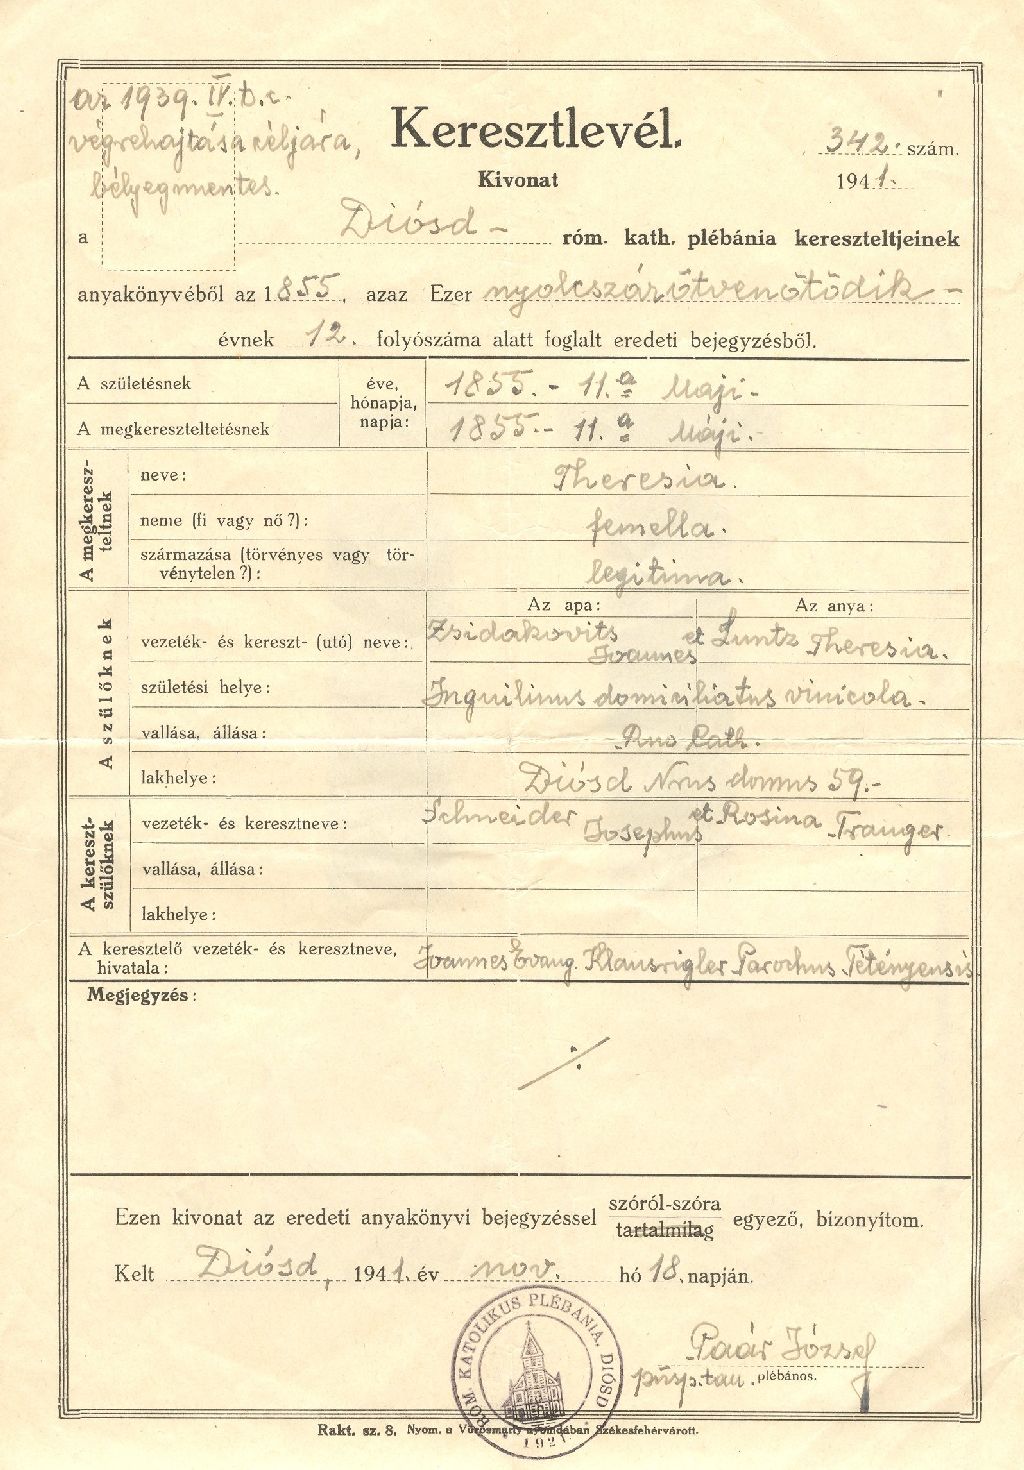 az 1939. IV. t.c.
végrehajtása céljára,
bélyegmentes.
Keresztlevél.
Kivonat
342. szám.
1941.
a Diósd – róm. kath. plébánia kereszteltjeinek
anyakönyvéből az 1855., azaz Ezer nyolcszázötvenötödik –
évnek 12. folyószáma alatt foglalt eredeti bejegyzésből.
A születésnek éve, hónapja, napja: 1855. - 11.a Maji -
A megkereszteltetésnek 1855.- 11.a Máji.-
A megkeresz-
teltnek
neve: Theresia.
neme (fi vagy nő?): femella.
származása (törvényes vagy tör-
vénytelen?): legitima.
A szülőknek
Az apa: Az anya:
vezeték- és kereszt- (utó) neve: Zsidakovits Joannes et Luntz Theresia.
születési helye: Inquilinus domiciliatus vinicola.
vallása, állása: Rno Cath.
lakhelye: Diósd Nrus domus 59.-
A kereszt-
szülőknek
vezeték- és keresztneve: Schneider Josephus et Rosina Tranger
vallása, állása:
lakhelye:
A keresztelő vezeték- és keresztneve,
hivatala: Joannes Evang. Klausrigler Parochus Tétényensis.
Megjegyzés:
·/·
Ezen kivonat az eredeti anyakönyvi bejegyzéssel szóról-szóra
tartalmilag egyező, bizonyítom.
Kelt Diósd, 1941. év nov. hó 18. napján.
RÓM. KATOLIKUS PLÉBÁNIA. DIÓSD
1921
Paár József
püsp. tan. plébános.
Rakt. sz. 8. Nyom. a Vörösmarty nyomdában Székesfehérvárott.